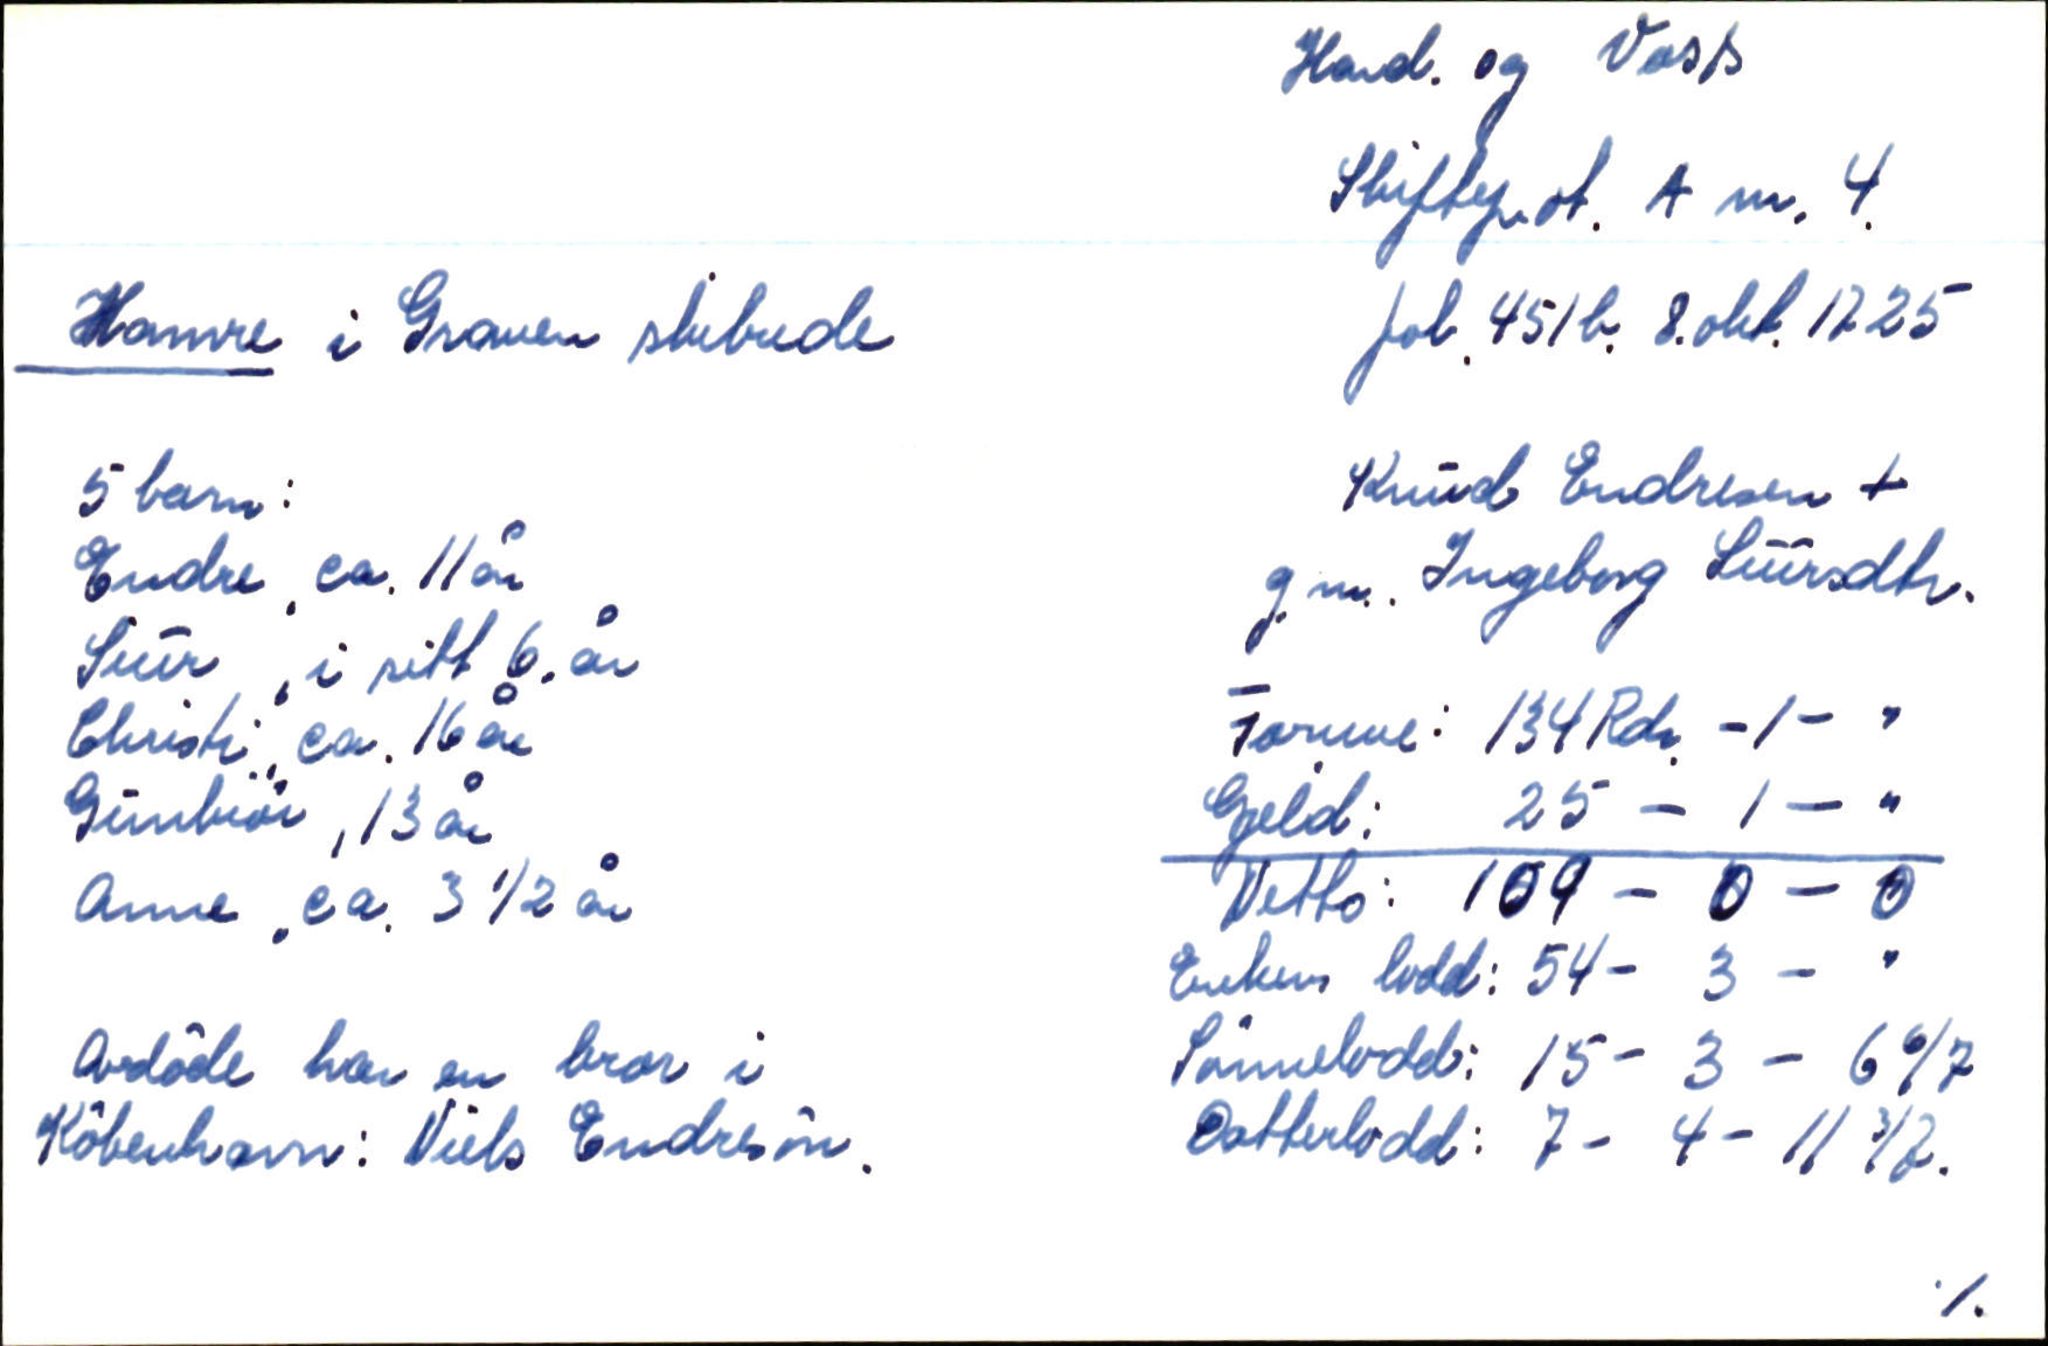 Hard. og Voss
Skifteprot. A nr. 4.
fol. 451b. 8. okt. 1725
Hamre i Graven skibrede
Knud Endresen +
g.m. Ingeborg Siursdtr.
5 barn:
Endre, ca. 11 år
Siur, i sitt 6. år
Christi, ca. 16 år
Gunbiör, 13 år
Anne, ca. 3 1/2 år
Formue: 134 Rdr. - 1 - "
Gjeld: 25 - 1 - "
Netto: 109 - 0 - 0
Enkens lodd: 54 - 3 - "
Sönnelodd: 15 - 3 - 6 6/7
Datterlodd: 7 - 4 - 11 3/7.
Avdöde har en bror i
Köbenhavn: Niels Endresön.
./.